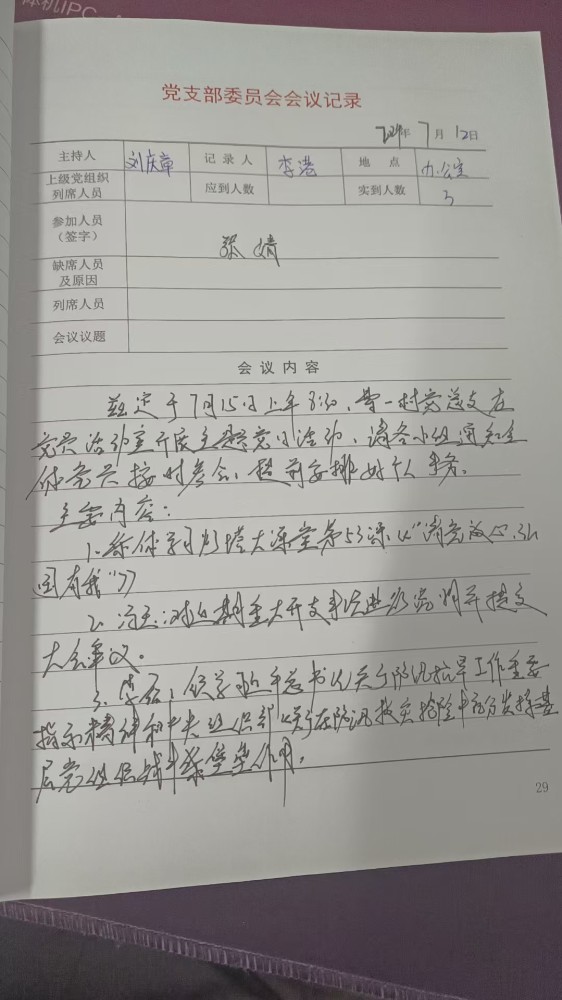 体机IPC
党支部委员会会议记录
2024年 7 月 12 日
主持人 刘庆章 记录人 李浩 地点 办公室
上级党组织列席人员 应到人数 实到人数 3
参加人员（签字） 张婧
缺席人员及原因
列席人员
会议议题
会议内容
兹定于7月15日上午8:30，曹一村党总支在
党员活动室开展主题党日活动，请各小组通知全
体党员按时参会，提前安排好个人事务。
主要内容：
1、集体学习灯塔大课堂第53课《"请党放心，强
国有我"》
2、对近期重大开支事项进行说明并提交
大会审议。
3、领学习近平总书记关于防汛抗旱工作重要
指示精神和中央组织部《关于在防汛救灾抢险中充分发挥基
层党组织战斗堡垒作用。
29